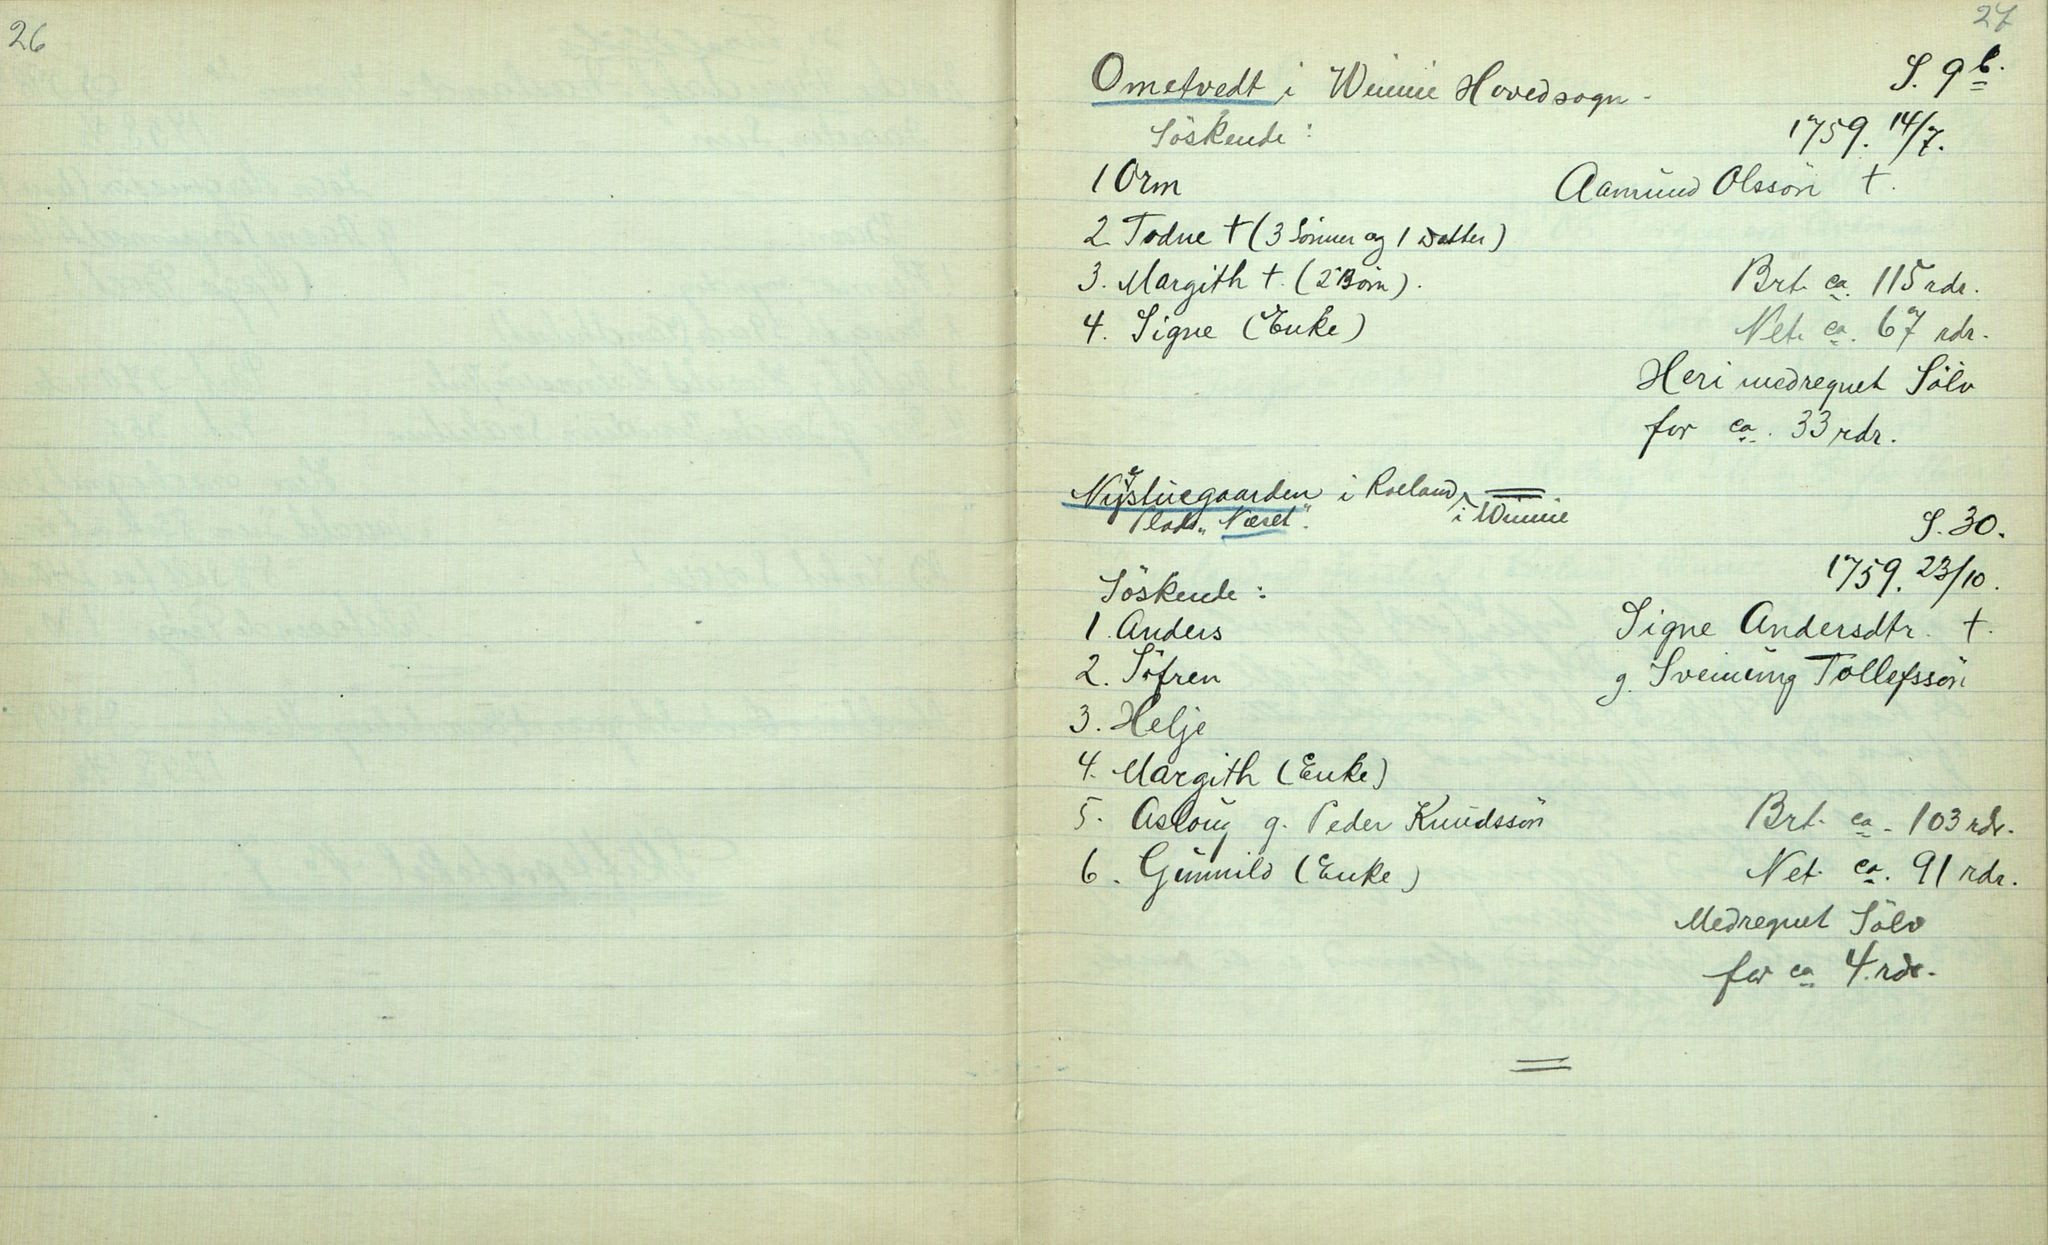 26
27
Ometvedt i Winnie Hovedsogn. S. 9 b.
Söskende: 1759. 14/7.
1 Orm Aamund Olssön †.
2 Todne † (3 Sönner og 1 Datter)
3. Margith †. (2 Börn). Brt. ca. 115 rdr.
4. Signe (Enke) Net. ca. 67 rdr.
Heri medregnet Sölv
for ca. 33 rdr.
Nystuegaarden i Roeland i Winnie
Plads „Næset". S. 30.
1759. 23/10.
Söskende:
1. Anders Signe Andersdtr. †.
2. Söfren g. Sveinung Tollefssön
3. Helje
4. Margith (Enke)
5. Asloug g. Peder Knudssön Brt. ca. 103 rdr.
6. Gunnild (Enke) Net. ca. 91 rdr.
Medregnet Sölv
for ca 4 rdr.